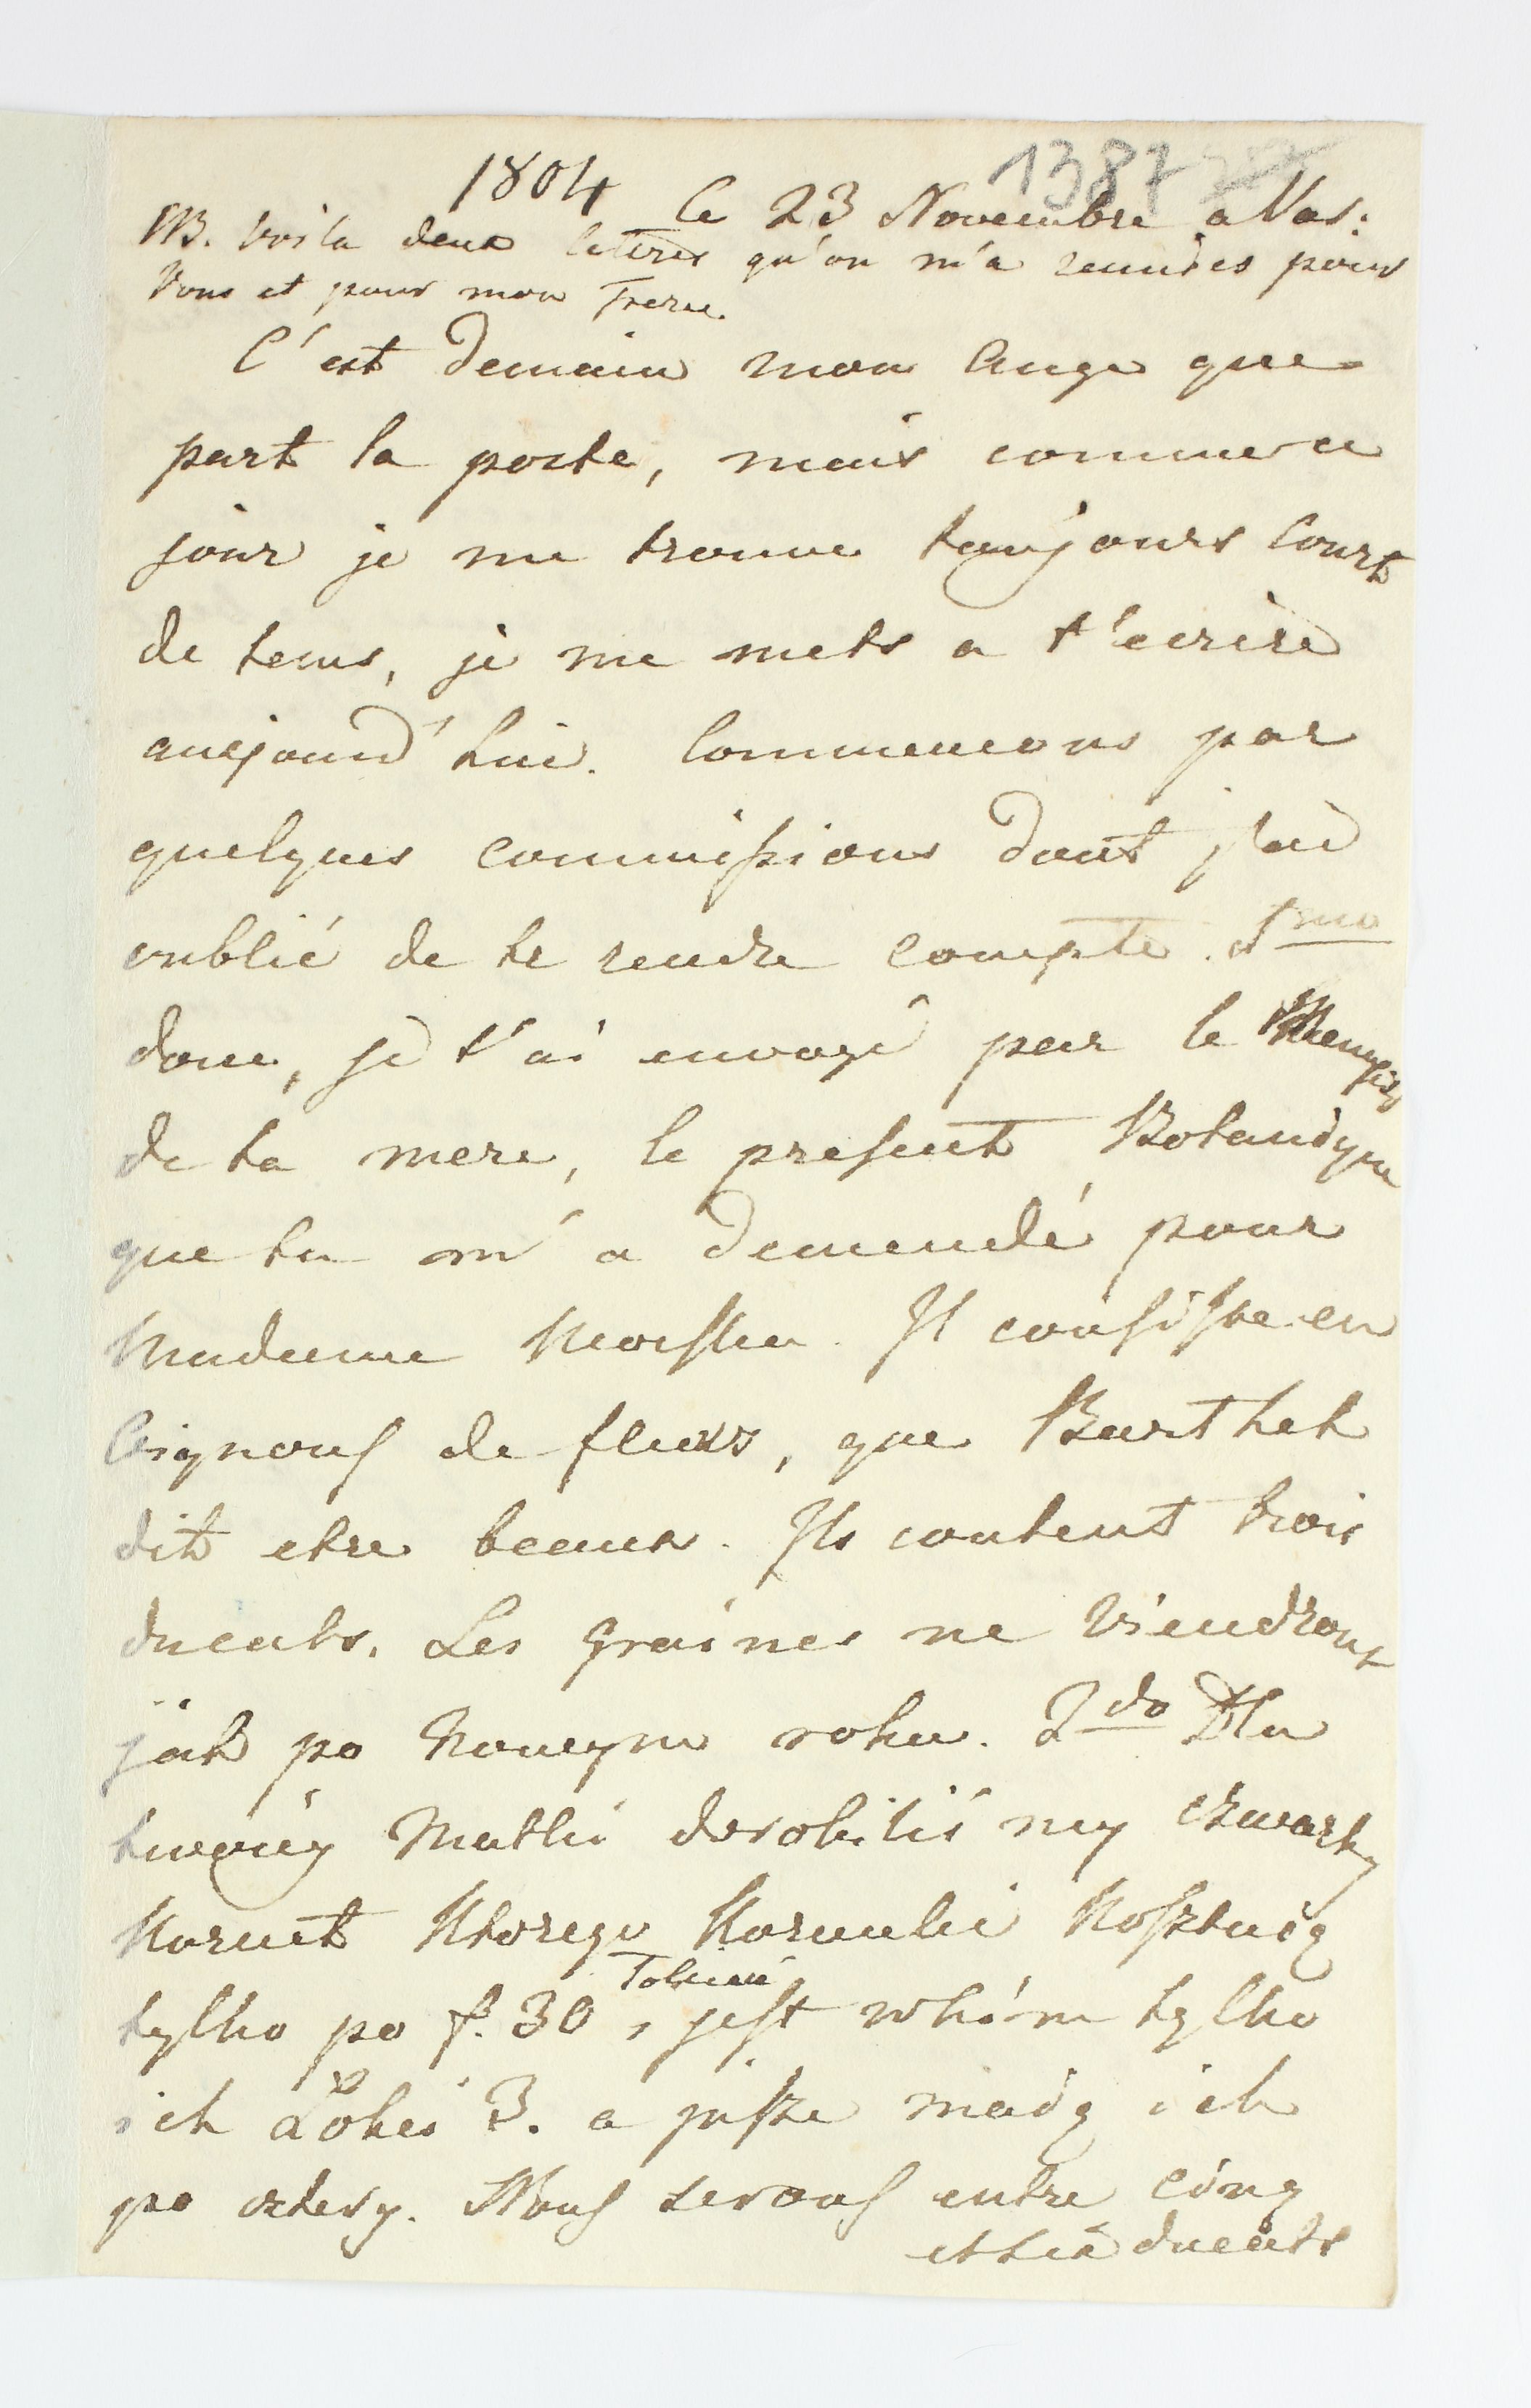 1387
1804 Ce 23 Novembre a Vars:
NB. Voila deux lettres qu'on m'a remises pour
Vous et pour mon Frere.
C'est demain mon Ange que
part la poste, mais comme ce
jour je me trouve toujours Court
de tems, je me mets a t'ecrire
aujourd'hui. Commencons par
quelques commissions dont j'ai
oublié de te rendre compte. 1mo
donc, je t'ai envoyé par le
de ta mere, le present Botanique
que tu m'a demendé pour
Madame Il consiste en
Oignons de fleurs, que Barthet
dit etre beaux. Ils coutent trois
ducats. Les graines ne Viendront
jak po Nowym roku. 2do Dla
twoiéy Matki dorobiliśmy czwarty
Kornet Ktorego Kornuki Kosztuią
tylko po f. 30, jest w kim tylko
ich Łokci 3. a jusze maią ich
po cztery. Nous serons entre cinq
et six ducats